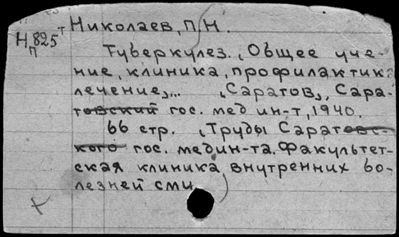 Николаев, П.Н.
Н 825 т
п
Туберкулез. (Общее уче-
ние, клиника, профилактика
лечение)... "Саратов", Сара-
товский гос. мед ин-т, 1940.
66 стр. (Труды Саратовс-
кого гос. медин-та. Факультет-
ская клиника внутренних бо-
лезней сми)